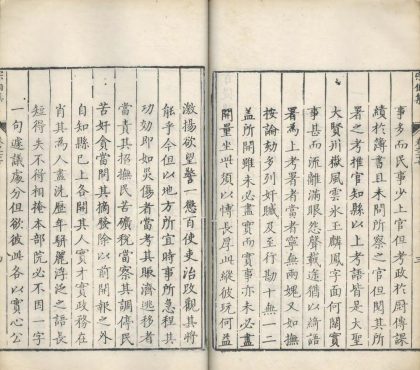 事多而民事少上官但考政於廚傳課
績於簿書且未問所察之官但閱其所
署之考推官知縣以上考語皆是大聖
大賢川嶽風雲氷玉麟鳳字面何關實
事甚而流離滿眼怨聲載道猶以綺語
署為上考署者當者寧無兩媿又如撫
按論劾多列奸贓及至行勘十無一二
蓋所聞雖未必盡實而實事亦未必盡
聞量坐此須以慱長厚此縱彼玩何益
激揚欲望警一懲百使吏治改觀其將
能乎今但以地方所宜時事所急程其
功効即如災傷者當考其賑濟逃移者
當責其招撫民苦礦稅當察其調停民
苦奸貪當問其摘發除以前開報之外
自知縣已上各開其人實才實政務在
肖其為人盡洗歷年駢麗浮泛之語長
短得失不得相掩本部院必不因一字
一句遽議處分但欲彼此各以實心公